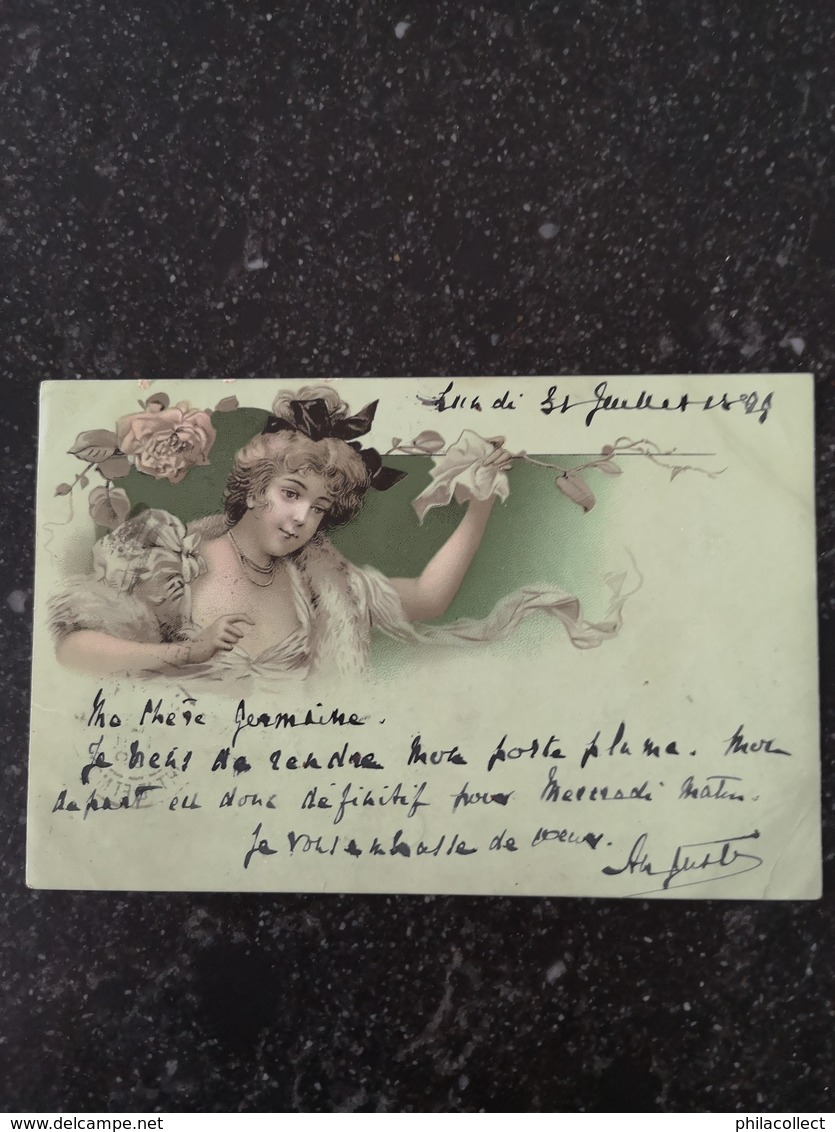 Lundi 31 Juillet 1899
Ma chère Germaine.
Je viens de rendre mon porte plume. Mon
depart est donc définitif pour Mercredi matin.
Je vous embrasse de cœur.
Auguste
delcampe.net
philacollect